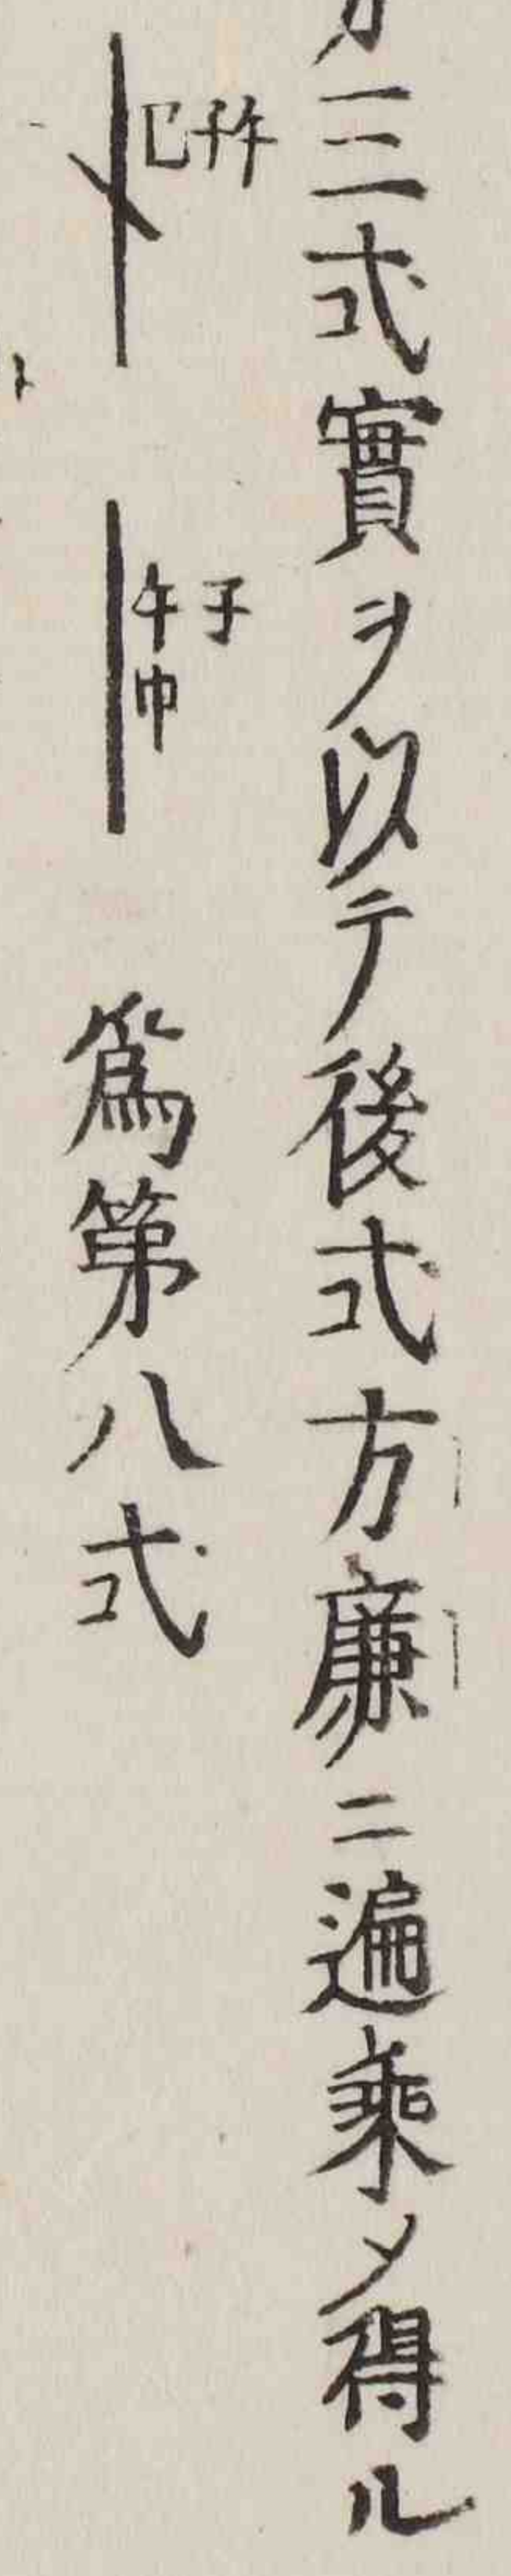 三式實ヲ以テ後式方廉ニ遍乘〆得ル
子午巾 爲第八式